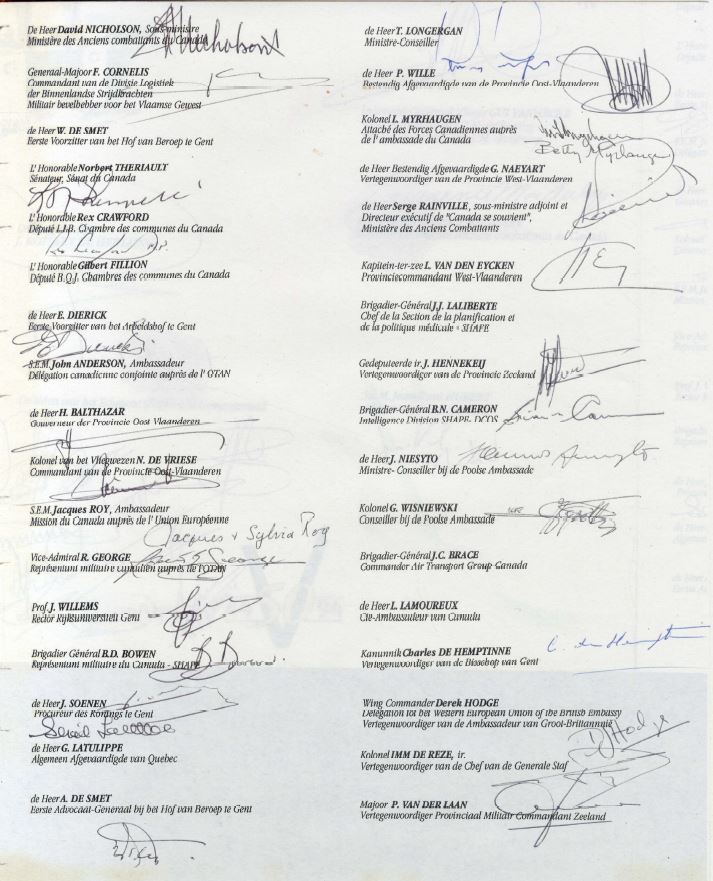 de Heer David NICHOLSON, Sous-ministre
Ministère des Anciens combattants du Canada
Generaal-Majoor F. CORNELIS
Commandant van de Divisie Logistiek
der Binnenlandse Strijdkrachten
Militair bevelhebber voor het Vlaamse Gewest
de Heer W. DE SMET
Eerste Voorzitter van het Hof van Beroep te Gent
L' Honorable Norbert THERIAULT
Sénateur, Sénat du Canada
L' Honorable Rex CRAWFORD
Député L.I.B. Chambre des communes du Canada
L' Honorable Gilbert FILLION
Député B.Q.J. Chambres des communes du Canada
de Heer E. DIERICK
Eerste Voorzitter van het Arbeidshof te Gent
S.E.M. John ANDERSON, Ambassadeur
Délégation canadienne conjointe auprès de l' OTAN
de Heer H. BALTHAZAR
Gouverneur der Provincie Oost Vlaanderen
Kolonel van het Vliegwezen N. DE VRIESE
Commandant van de Provincie Oost-Vlaanderen
S.E.M. Jacques ROY, Ambassadeur
Mission du Canada auprès de l' Union Européenne
Jacques + Sylvia Roy
Vice-Admiral R. GEORGE
Représentant militaire canadien auprès de l'OTAN
Prof. J. WILLEMS
Rector Rijksuniversiteit Gent
Brigadier Général B.D. BOWEN
Représentant militaire du Canada - SHAPE
de Heer J. SOENEN
Procureur des Konings te Gent
de Heer G. LATULIPPE
Algemeen Afgevaardigde van Quebec
de Heer A. DE SMET
Eerste Advocaat-Generaal bij het Hof van Beroep te Gent
de Heer T. LONGERGAN
Ministre-Conseiller
de Heer P. WILLE
Bestendig Afgevaardigde van de Provincie Oost-Vlaanderen
Kolonel L. MYRHAUGEN
Attaché des Forces Canadiennes autrès
de l' ambassade du Canada
Betty Myrhaugen
de Heer Bestendig Afgevaardigde G. NAEYART
Vertegenwoordiger van de Provincie West-Vlaanderen
de Heer Serge RAINVILLE, sous-ministre adjoint et
Directeur exécutif de "Canada se souvient",
Ministère des Anciens Combattants
Kapitein-ter-zee L. VAN DEN EYCKEN
Provinciecommandant West-Vlaanderen
Brigadier-Général J.J. LALIBERTE
Chef de la Section de la planification et
de la politique médicale - SHAFE
Gedeputeerde ir. J. HENNEKEIJ
Vertegenwoordiger van de Provincie Zeeland
Brigadier-Général B.N. CAMERON
Intelligence Division SHAPE- DCOS
de Heer J. NIESYTO
Ministre- Conseiller bij de Poolse Ambassade
Kolonel G. WISNIEWSKI
Conseiller bij de Poolse Ambassade
Brigadier-Général J.C. BRACE
Commander Air Transport Group Canada
de Heer L. LAMOUREUX
Cie-Ambassadeur van Canada
Kanunnik Charles DE HEMPTINNE
Vertegenwoordiger van de Bisschop van Gent
Wing Commander Derek HODGE
Delegation tot het Western European Union of the British Embassy
Vertegenwoordiger van de Ambassadeur van Groot-Brittannië
D Hodge
Kolonel IMM DE REZE, ir.
Vertegenwoordiger van de Chef van de Generale Staf
Majoor P. VAN DER LAAN
Vertegenwoordiger Provinciaal Militair Commandant Zeeland